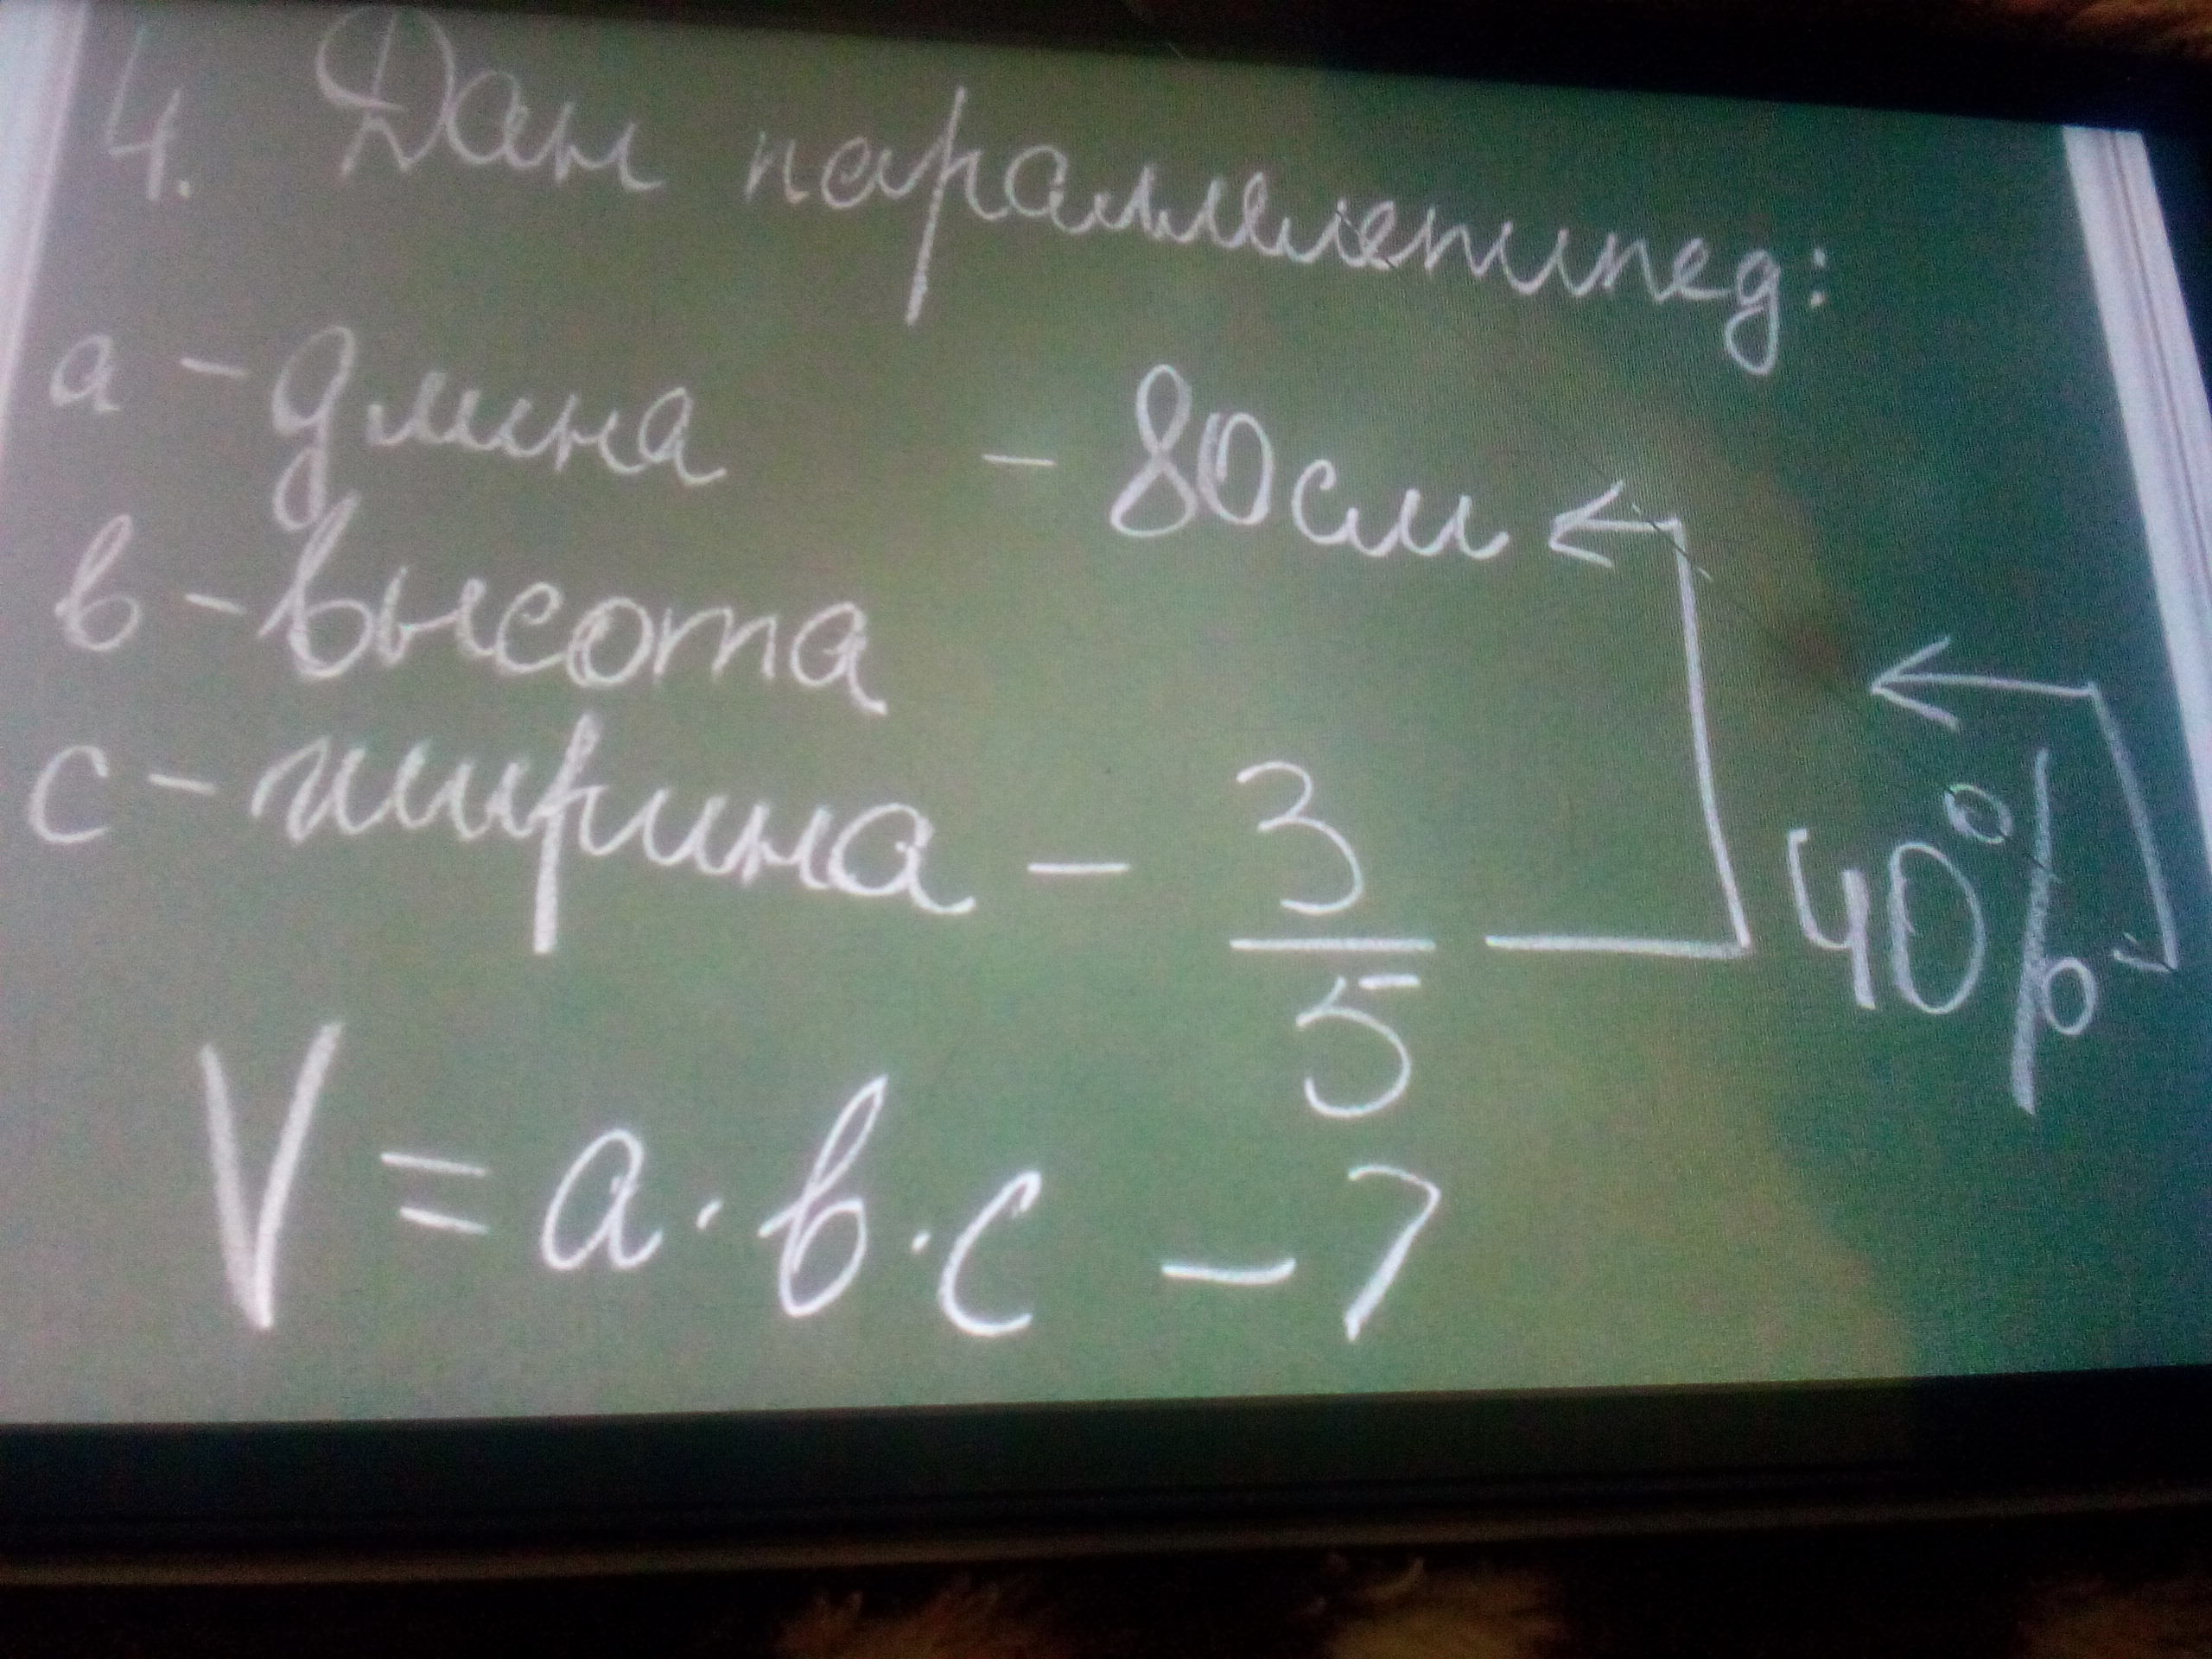 4. Дан параллепипед:
a - длина - 80см
в - высота
с - ширина - 3/5 40%
V = a · в · c - ?